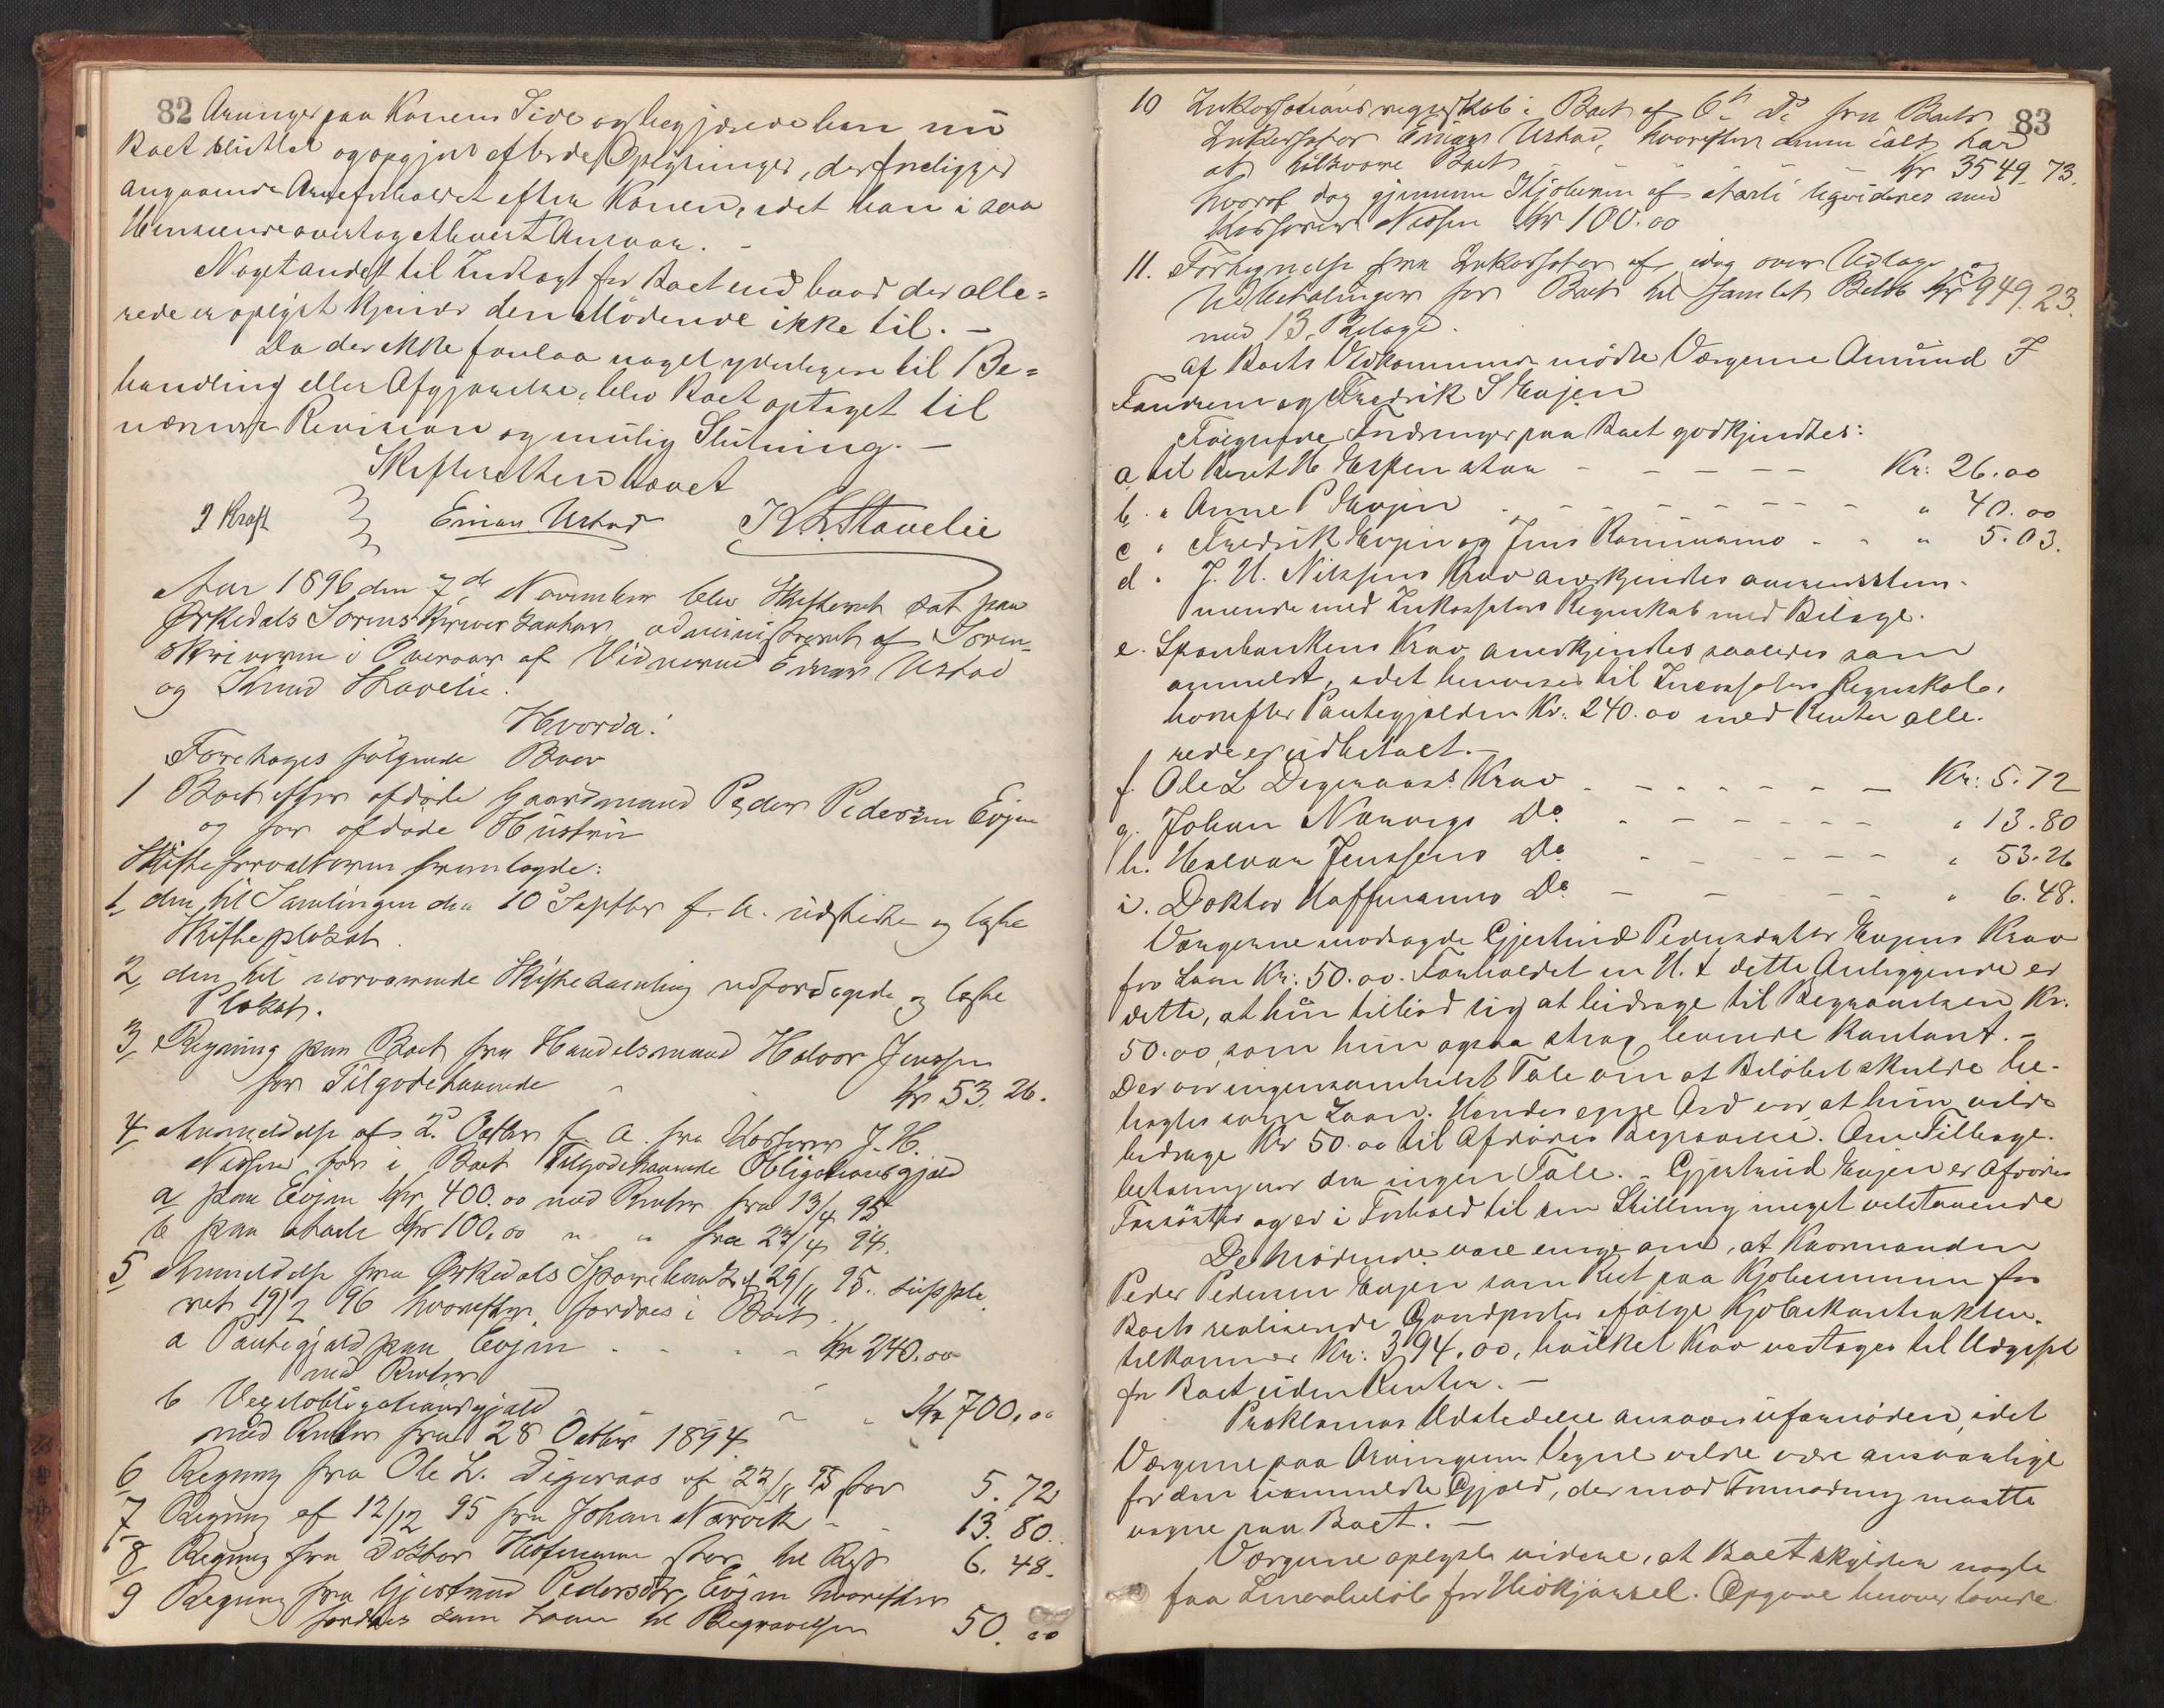 82
Arvinger paa Konens Side og begjærede han nu
Boet sluttet og opgjort efter de Oplysninger, der foreligger
angaaende Arveforholdet efter Konen, idet han i saa
Henseende overtog ethvert Ansvar. -
Noget andet til Indtægt for Boet end hvad der alle=
rede er oplyst kjender den Mødende ikke til. -
Da der ikke forelaa noget yderligere til Be=
handling eller Afgjørelse, blev Boet optaget til
nærmere Revision og mulig Slutning. -
Skifteretten hævet
J Kraft Einar Ustad K L Stavelie
Aar 1896 den 7de November blev Skifteret sat paa
Ørkedals Sorenskriver Kontor administreret af Soren-
skriveren i Overvær af Vidnerne Einar Ustad
og Knud Stavelie.
Hvorda:
Foretoges følgende Boer
1 Boet efter afdøde Gaardmand Peder Pedersen Evjen
og før afdøde Hustru
Skifteforvalteren fremlagde:
1, den til Samlingen den 10de Septbr f. A. udstedte og læste
Skifteplakat.
2, den til nærværende Skiftesamling udfærdigede og læste
Plakat.
3, Regning paa Boet fra Handelsmand Halvor Jenssen
for Tilgodehavende Kr 53. 26.
4, Anmeldelse af 2d Octbr f. A. fra Kasserer J. H.
Nissen for i Boet Tilgodehavende Obligationsgjæld
a paa Evjen Kr. 400.00 med Renter fra 13/4 95
b paa Kr 100.00 " " fra 23/4 94.
5, Anmeldelse fra Ørkedals Sparebank af 29/11 95. supple
ret 19/2 96 hvorefter fordres i Boet.
a Pantegjæld paa Evjen - - - - Kr 240.00
med Renter
b Vexelobligationsgjæld - - - Kr 700.00
med Renter fra 28 Octbr 1894
6, Regning fra Ole L. Digeraas af 22/11 95 for 5. 72
7, Regning af 12/12 95 fra Johan Narvik - - 13. 80.
8, Regning fra Doktor Hoffmann stor til Rest 6. 48.
9 Regning fra Gjertrud Pedersdtr Evjen hvorefter
fordres som Laan til Begravelsen 50. 00
83
10 Inkassationsregnskab i Boet af 6te ds. fra Boets
Inkassator Einar Ustad, hvorefter denne ialt har
at tilsvare Boet - - - Kr 3549. 73.
hvoraf dog gjennem Kjøberen af likvideres med
Kasserer Nissen Kr 100.00
11. Fortegnelse fra Inkassator af idag over Udlæg og
Udbetalinger for Boet til samlet Beløb Kr 949. 23.
med 13 Bilage.
Af Boets Vedkommende mødte Værgerne Amund F
Fandrem og Fredrik S Evjen
Følgende Fordringer paa Boet godkjendtes:
a til Kr: 26.00
b. " Anne P Evjen - - - - - - - " 40.00
c " Fredrik Evjen og Jens - - " 5.03.
d " J. H. Nissens Krav anerkjendtes overensstem-
mende med Inkassators Regnskab med Bilage.
e. Sparebankens Krav anerkjendtes saaledes som
anmeldt, idet henvises til Incassators Regnskab,
hvorefter Pantegjælden Kr. 240.00 med Renter alle-
rede er udbetalt. -
f Ole L Digeraas's Krav - - - - - - - Kr: 5.72
g. Johan Narviks Do - - - - - - " 13.80
h. Halvor Jenssens Do - - - - - - " 53.26
i. Doktor Hoffmanns Do - - - - " 6.48.
Værgerne modsagde Gjertrud Pedersdatter Evjens Krav
for Laan Kr: 50.00. Forholdet m. H. t. dette Anliggende er
dette, at hun tilbød sig at bidrage til Begravelsen Kr.
50.00, som hun ogsaa strax leverede kontant. -
Der var ingensomhelst Tale om at Beløbet skulde be-
tragtes som Laan. Hendes egne Ord var, at hun vilde
bidrage Kr 50.00 til Afdødes Begravelse. Om Tilbage-
betaling var der ingen Tale. - Gjertrud Evjen er Afdødes
og er i Forhold til sin Stilling meget velstaaende
De Mødende vare enige om, at Kaarmanden
Peder Pedersen Evjen som Rest paa Kjøbesummen for
Boets realiserede Gaardparter ifølge Kjøbekontrakten
tilkommer Kr: 394.00, hvilket Krav vedtages til Udgift
for Boet uden Renter. -
Proklamas Udstedelse ansaaes ufornøden, idet
Værgerne paa Arvingernes Vegne vilde være ansvarlige
for den uanmeldte Gjæld, der mod Formodning maatte
være paa Boet. -
Værgerne oplyste videre, at Boet skylder nogle
faa Smaabeløb for Opgave herover lovede